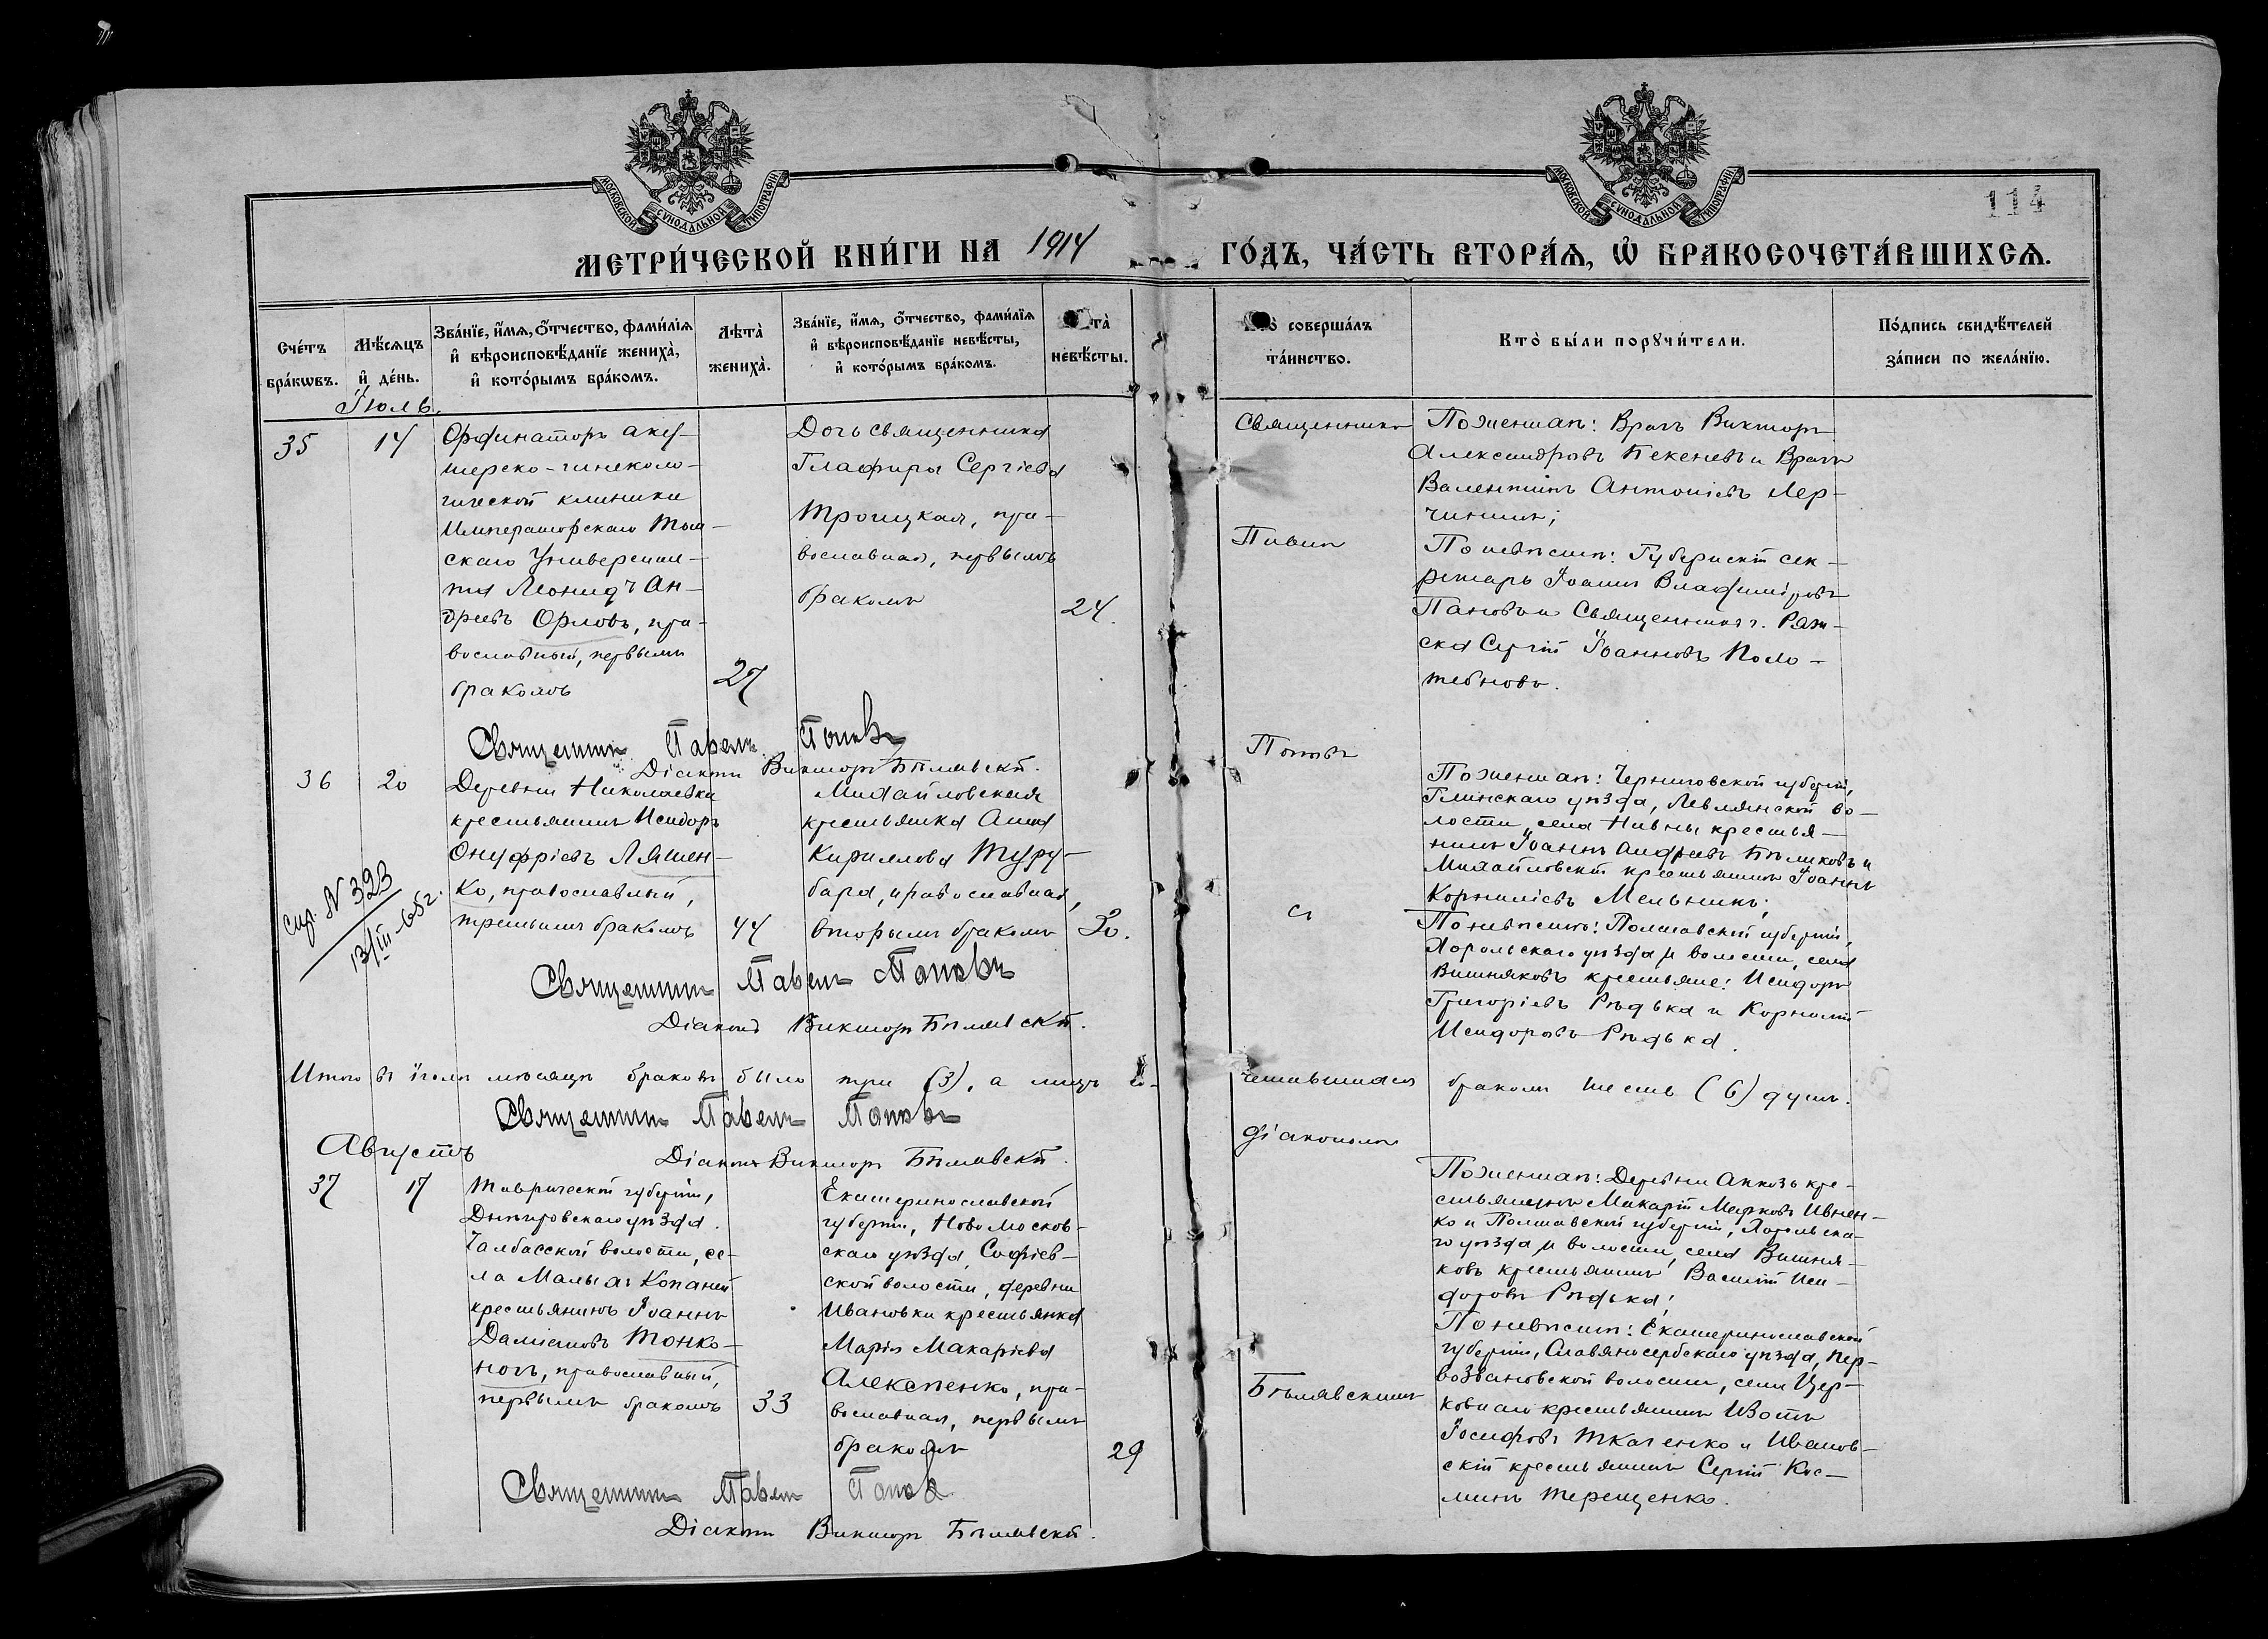 МОСКОВСКОЙ СУНОДАЛЬНОЙ ТИПОГРАФІИ
МОСКОВСКОЙ СУНОДАЛЬНОЙ ТИПОГРАФІИ
114
МЕТРИ́ЧЕСКОЙ КНИ́ГИ НА 1914 ГО́ДЪ, ЧА́СТЬ ВТОРА́Ѧ, Ѽ БРАКОСОЧЕТА́ВШИХСѦ.
Сче́тъ бра́кѡвъ.
Мѣ́сѧцъ и҆ де́нь.
Зва́нїе, и҆́мѧ, ѻ҆́тчество, фами́лїѧ
и҆ вѣроисповѣ́данїе жениха̀,
и҆ кото́рымъ бра́комъ.
Лѣта̀ жениха̀.
Зва́нїе, и҆́мѧ, ѻ҆́тчество, фами́лїѧ
и҆ вѣроисповѣ́данїе невѣ́сты,
и҆ кото́рымъ бра́комъ.
невѣ́сты.
соверша́лъ та́инство.
Кто̀ бы́ли порꙋчи́тели.
По́дпись свидѣ́телей
за́писи по жела́нїю.
Іюль.
35
14
Ординаторъ аку-
шерско-гинеколо-
гической клиники
Императорскаго Том-
скаго Университе-
та Леонидъ Ан-
дреевъ Орловъ, пра-
вославный, первымъ
бракомъ
27
Дочь священника
Глафира Сергіева
Троицкая, пра-
вославная, первымъ
бракомъ
24.
Священникъ
Павелъ
Поповъ
По женихѣ: Врачъ Викторъ
Александровъ Бекеневъ и Врачъ
Валентинъ Антоніевъ Лер-
чинскій;
По невѣстѣ: Губернскій сек-
ретарь Іоаннъ Владиміровъ
Пановъ и Священникъ г. Ряж-
ска Сергій Іоанновъ Поло-
тебновъ.
Священникъ Павелъ Поповъ
Діаконъ Викторъ Бѣлявскій.
36
20
Деревни Николаевки
крестьянинъ Исидоръ
Онуфріевъ Ляшен-
ко, православный,
третьимъ бракомъ
44
Михайловская
крестьянка Анна
Кириллова Туру-
бара, православная,
вторымъ бракомъ
30.
съ
По женихѣ: Черниговской губерніи,
уѣзда, во-
лости, села Нивны крестья-
нинъ Іоаннъ Андреевъ Бѣликовъ и
Михайловскій крестьянинъ Іоаннъ
Корниліевъ Мельникъ;
По невѣстѣ: Полтавской губерніи,
Хорольскаго уѣзда и волости, села
Вишняковъ крестьяне: Исидоръ
Григоріевъ Рѣдька и Корнилій
Исидоровъ Рѣдька.
Спр. N 323
13/III-65г.
Священникъ Павелъ Поповъ
Діаконъ Викторъ Бѣлявскій.
Итого въ іюлѣ мѣсяцѣ браковъ было три (3), а лицъ со-
четавшихся бракомъ шесть (6) душъ.
Священникъ Павелъ Поповъ
Діаконъ Викторъ Бѣлявскій.
Августъ
37
17
Таврической губерніи,
Днѣпровскаго уѣзда.
Чалбасской волости, се-
ла Малыхъ Копаней
крестьянинъ Іоаннъ
Даміановъ Тонко-
ногъ, православный,
первымъ бракомъ
33
Екатеринославской
губерніи, Новомосков-
скаго уѣзда, Софіев-
ской волости, деревни
Ивановки крестьянка
Марія Макаріева
Алексѣенко, пра-
вославная, первымъ
бракомъ
29
діакономъ
Бѣлявскимъ
По женихѣ: Деревни кре-
стьянинъ Макарій Марковъ Ивнен-
ко и Полтавской губерніи, Хорольска-
го уѣзда и волости, села Вишня-
ковъ крестьянинъ Василій Иси-
доровъ Рѣдька;
По невѣстѣ: Екатеринославской
губерніи, Славяносербскаго уѣзда, Пер-
возвановской волости, села Цер-
ковнаго крестьянинъ Изотъ
Іосифовъ Ткаченко и Иванов-
скій крестьянинъ Сергій Кос-
минъ Терещенко.
Священникъ Павелъ Поповъ
Діаконъ Викторъ Бѣлявскій.